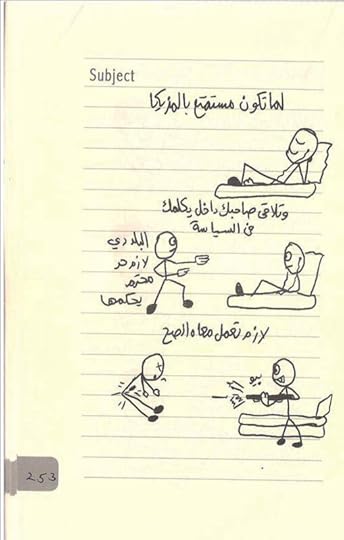 Subject
لما تكون مستمتع بالمزيكا
وتلاقى صاحبك داخل يكلمك
فى السياسة
البلد دي
لازم حد
محترم
يحكمها
لازم تعمل معاه الصح
253